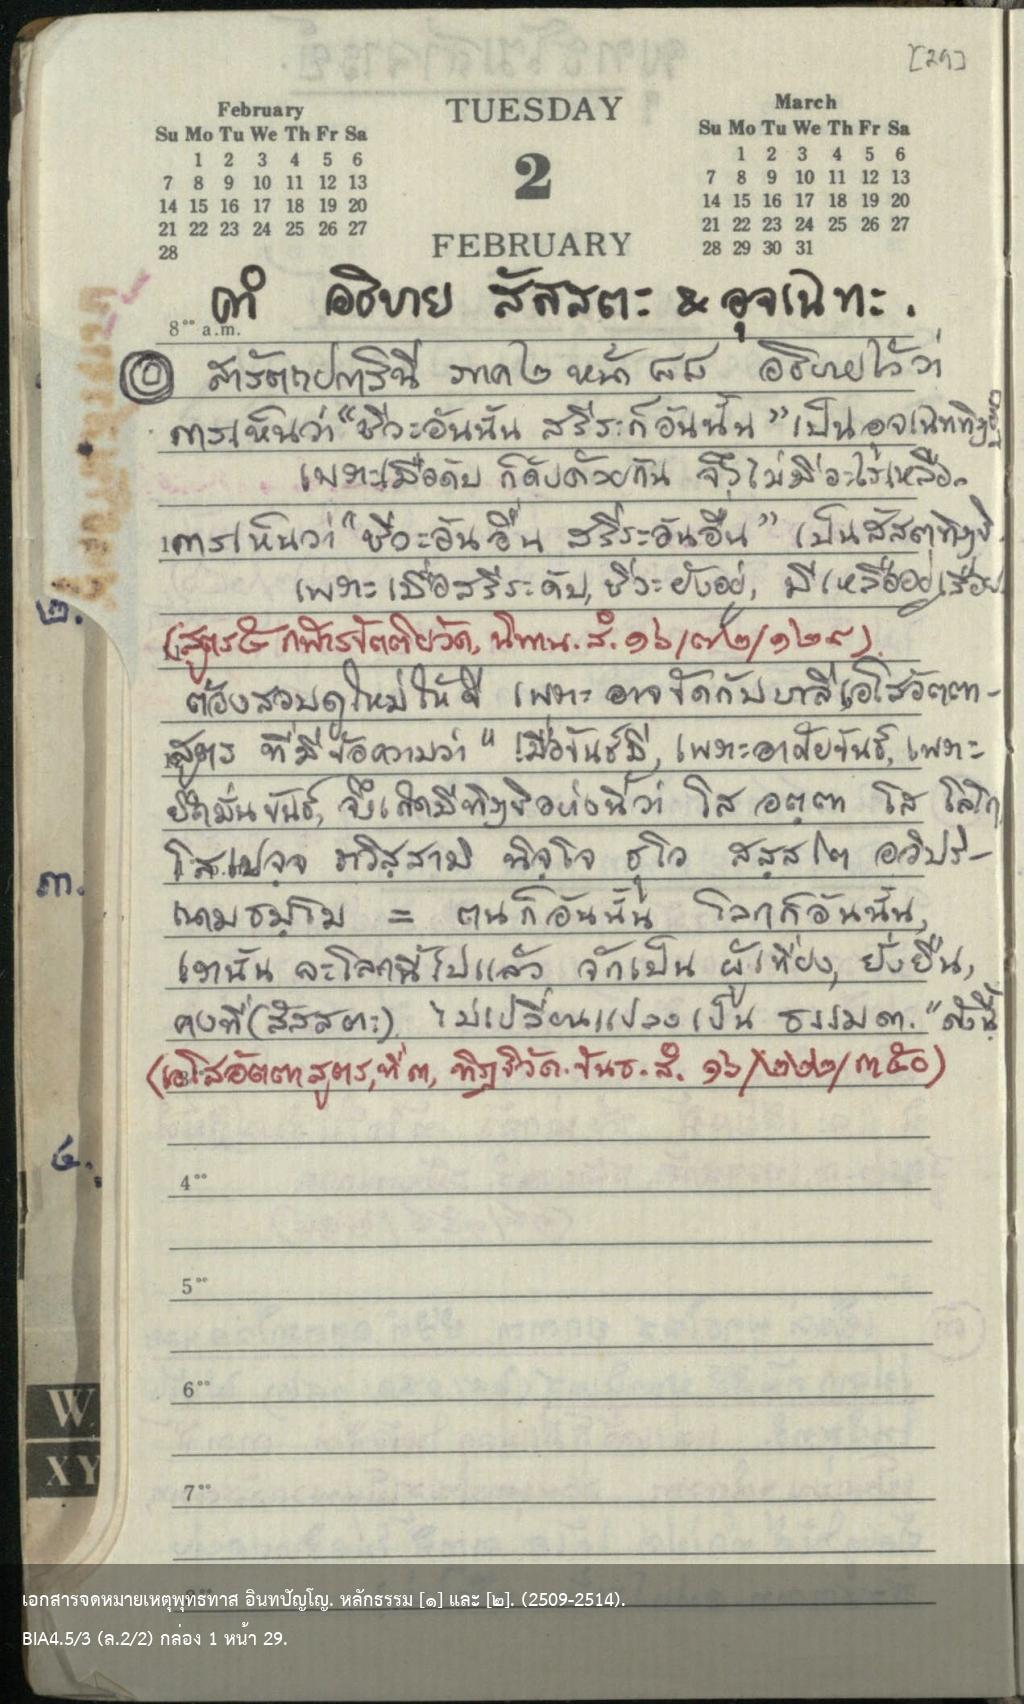 [29]
February
Su Mo Tu We Th Fr Sa
1 2 3 4 5 6
7 8 9 10 11 12 13
14 15 16 17 18 19 20
21 22 23 24 25 26 27
28
TUESDAY
2
FEBRUARY
March
Su Mo Tu We Th Fr Sa
1 2 3 4 5 6
7 8 9 10 11 12 13
14 15 16 17 18 19 20
21 22 23 24 25 26 27
28 29 30 31
คำ อธิบาย สัสสตะ & อุจเฉทะ.
8°° a.m.
สารัตถปกาสินี ภาค ๒ หน้า ๘๘ อธิบายไว้ว่า
การเห็นว่า "ชีวะอันนั้น สรีระก็อันนั้น" เป็นอุจเฉททิฏฐิ
เพราะเมื่อดับ ก็ดับด้วยกัน จึงไม่มีอะไรเหลือ.
การเห็นว่า "ชีวะอันอื่น สรีระอันอื่น" เป็นสัสสตทิฏฐิ
เพราะเมื่อสรีระดับ, ชีวะยังอยู่, มีเหลืออยู่เรื่อย
๒.
(สูตร๕ กฬารขัตติยวัค, นิทาน.สํ.๑๖/๗๒/๑๒๙)
ต้องสอบดูใหม่ให้ดี เพราะ อาจขัดกับบาลีโสอัตตา-
สูตร ที่มีข้อความว่า "เมื่อขันธ์มี, เพราะอาศัยขันธ์, เพราะ
ยึดมั่นขันธ์, จึงเกิดมีทิฏฐิอย่างนี้ว่า โส อตฺตา โส โลโก
โส เปจฺจ ภวิสฺสามิ นิจฺโจ ธุโว สสฺสโต อวิปริ-
๓.
ณามธมฺโม = ตนก็อันนั้น โลกก็อันนั้น,
เรานั้น ละโลกนี้ไปแล้ว จักเป็น ผู้เที่ยง, ยั่งยืน,
คงที่(สัสสตะ) ไม่เปลี่ยนแปลงเป็น ธรรมดา." ดังนี้
(โสอัตตาสูตร,ที่ ๓, ทิฏฐิวัค.ขันธ.สํ. ๑๖/๒๒๒/๓๕๐)
๔.
4°°
5°°
6°°
W
XY
7°°
เอกสารจดหมายเหตุพุทธทาส อินทปัญโญ. หลักธรรม [๑] และ [๒]. (2509-2514).
BIA4.5/3 (ล.2/2) กล่อง 1 หน้า 29.